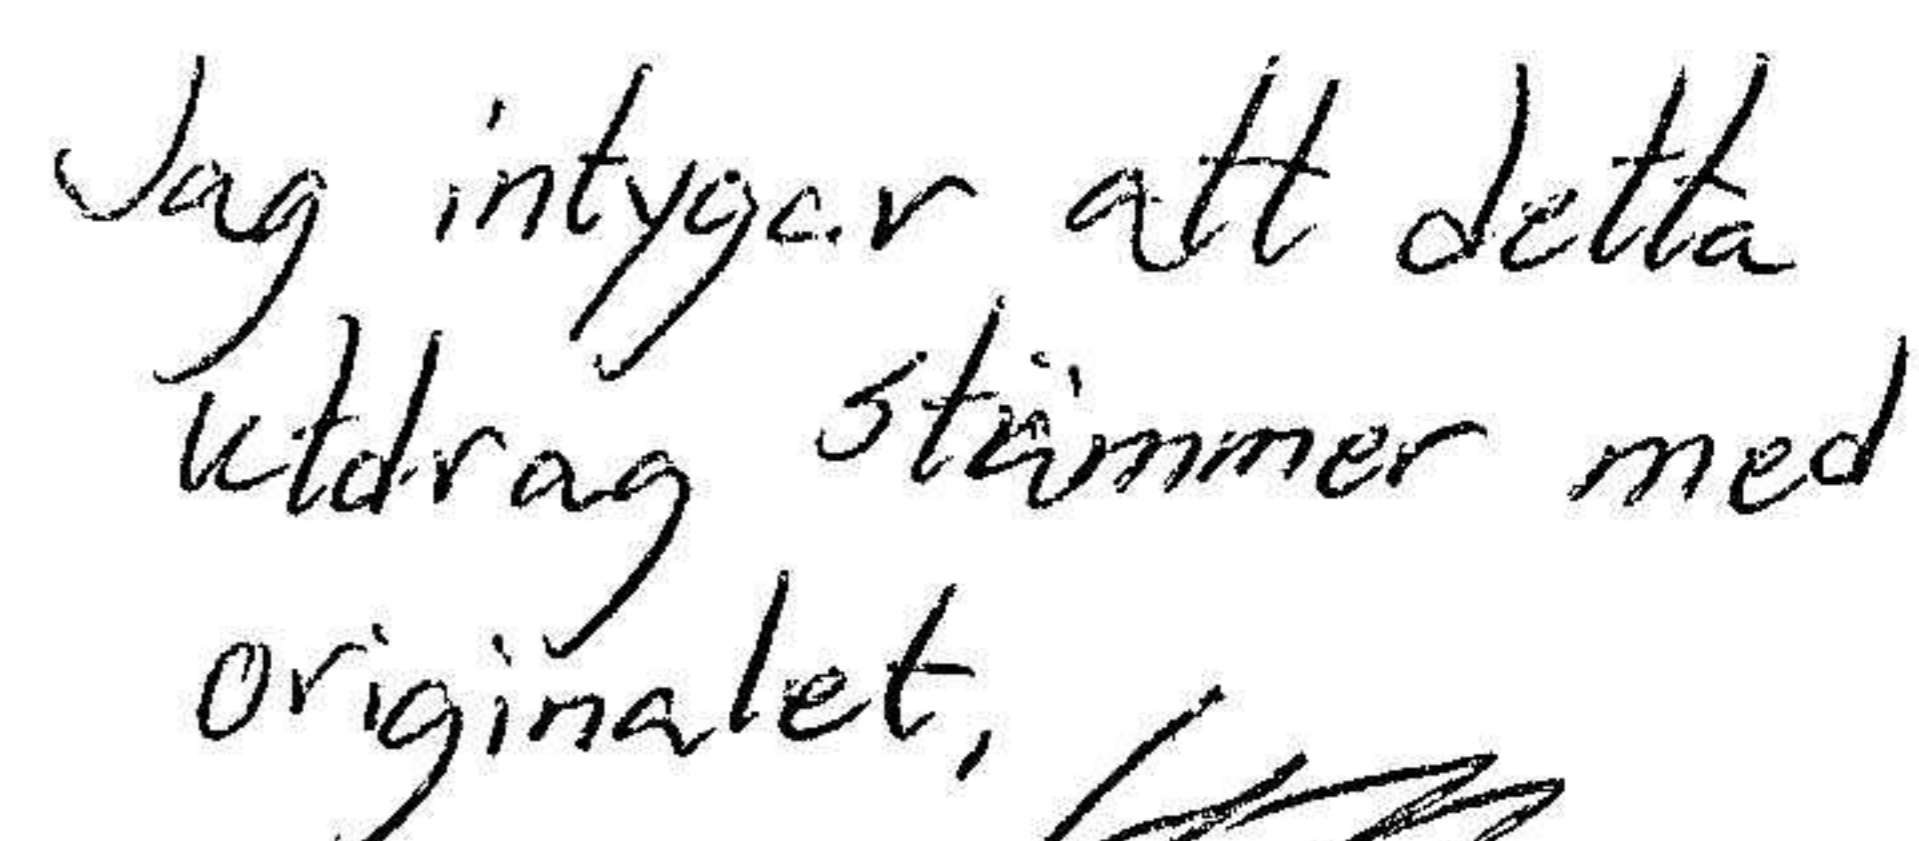 Jag intygar att detta
utdrag stämmer med
originalet,